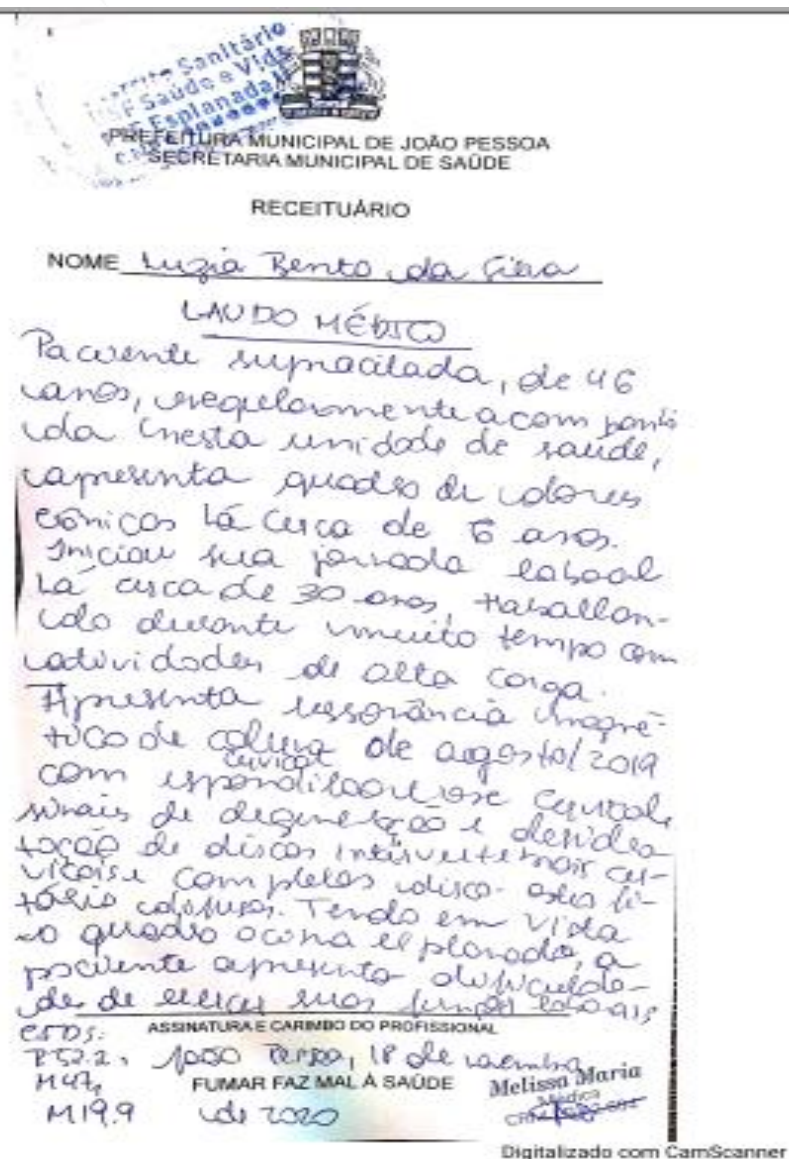 Distrito Sanitário
USF Saúde e Vida
Esplanada II
PREFEITURA MUNICIPAL DE JOÃO PESSOA
SECRETARIA MUNICIPAL DE SAÚDE
RECEITUÁRIO
NOME Luzia Bento da Silva
LAUDO MÉDICO
Paciente supracitada, de 46
anos, regularmente acompanha
da nesta unidade de saúde,
apresenta quadro de dores
crônicas há cerca de 6 anos.
Iniciou sua jornada laboral
há cerca de 30 anos, trabalhan-
do durante muito tempo com
atividades de alta carga.
Apresenta ressonância magné-
tica de coluna cervical de agosto/2019
com espondiloartrose cervical
sinais de degeneração e desidra
tação de discos intervertebrais cer-
vicais e complexos disco-osteofi-
tário difusos. Tendo em vista
o quadro acima explanado, a
paciente apresenta dificulda-
des de exercer suas funções laborais
ASSINATURA E CARIMBO DO PROFISSIONAL
CIDS:
R52.2, João Pessoa, 18 de
M47, FUMAR FAZ MAL À SAÚDE Melissa Maria
Médica
M19.9 de 2020
Digitalizado com CamScanner